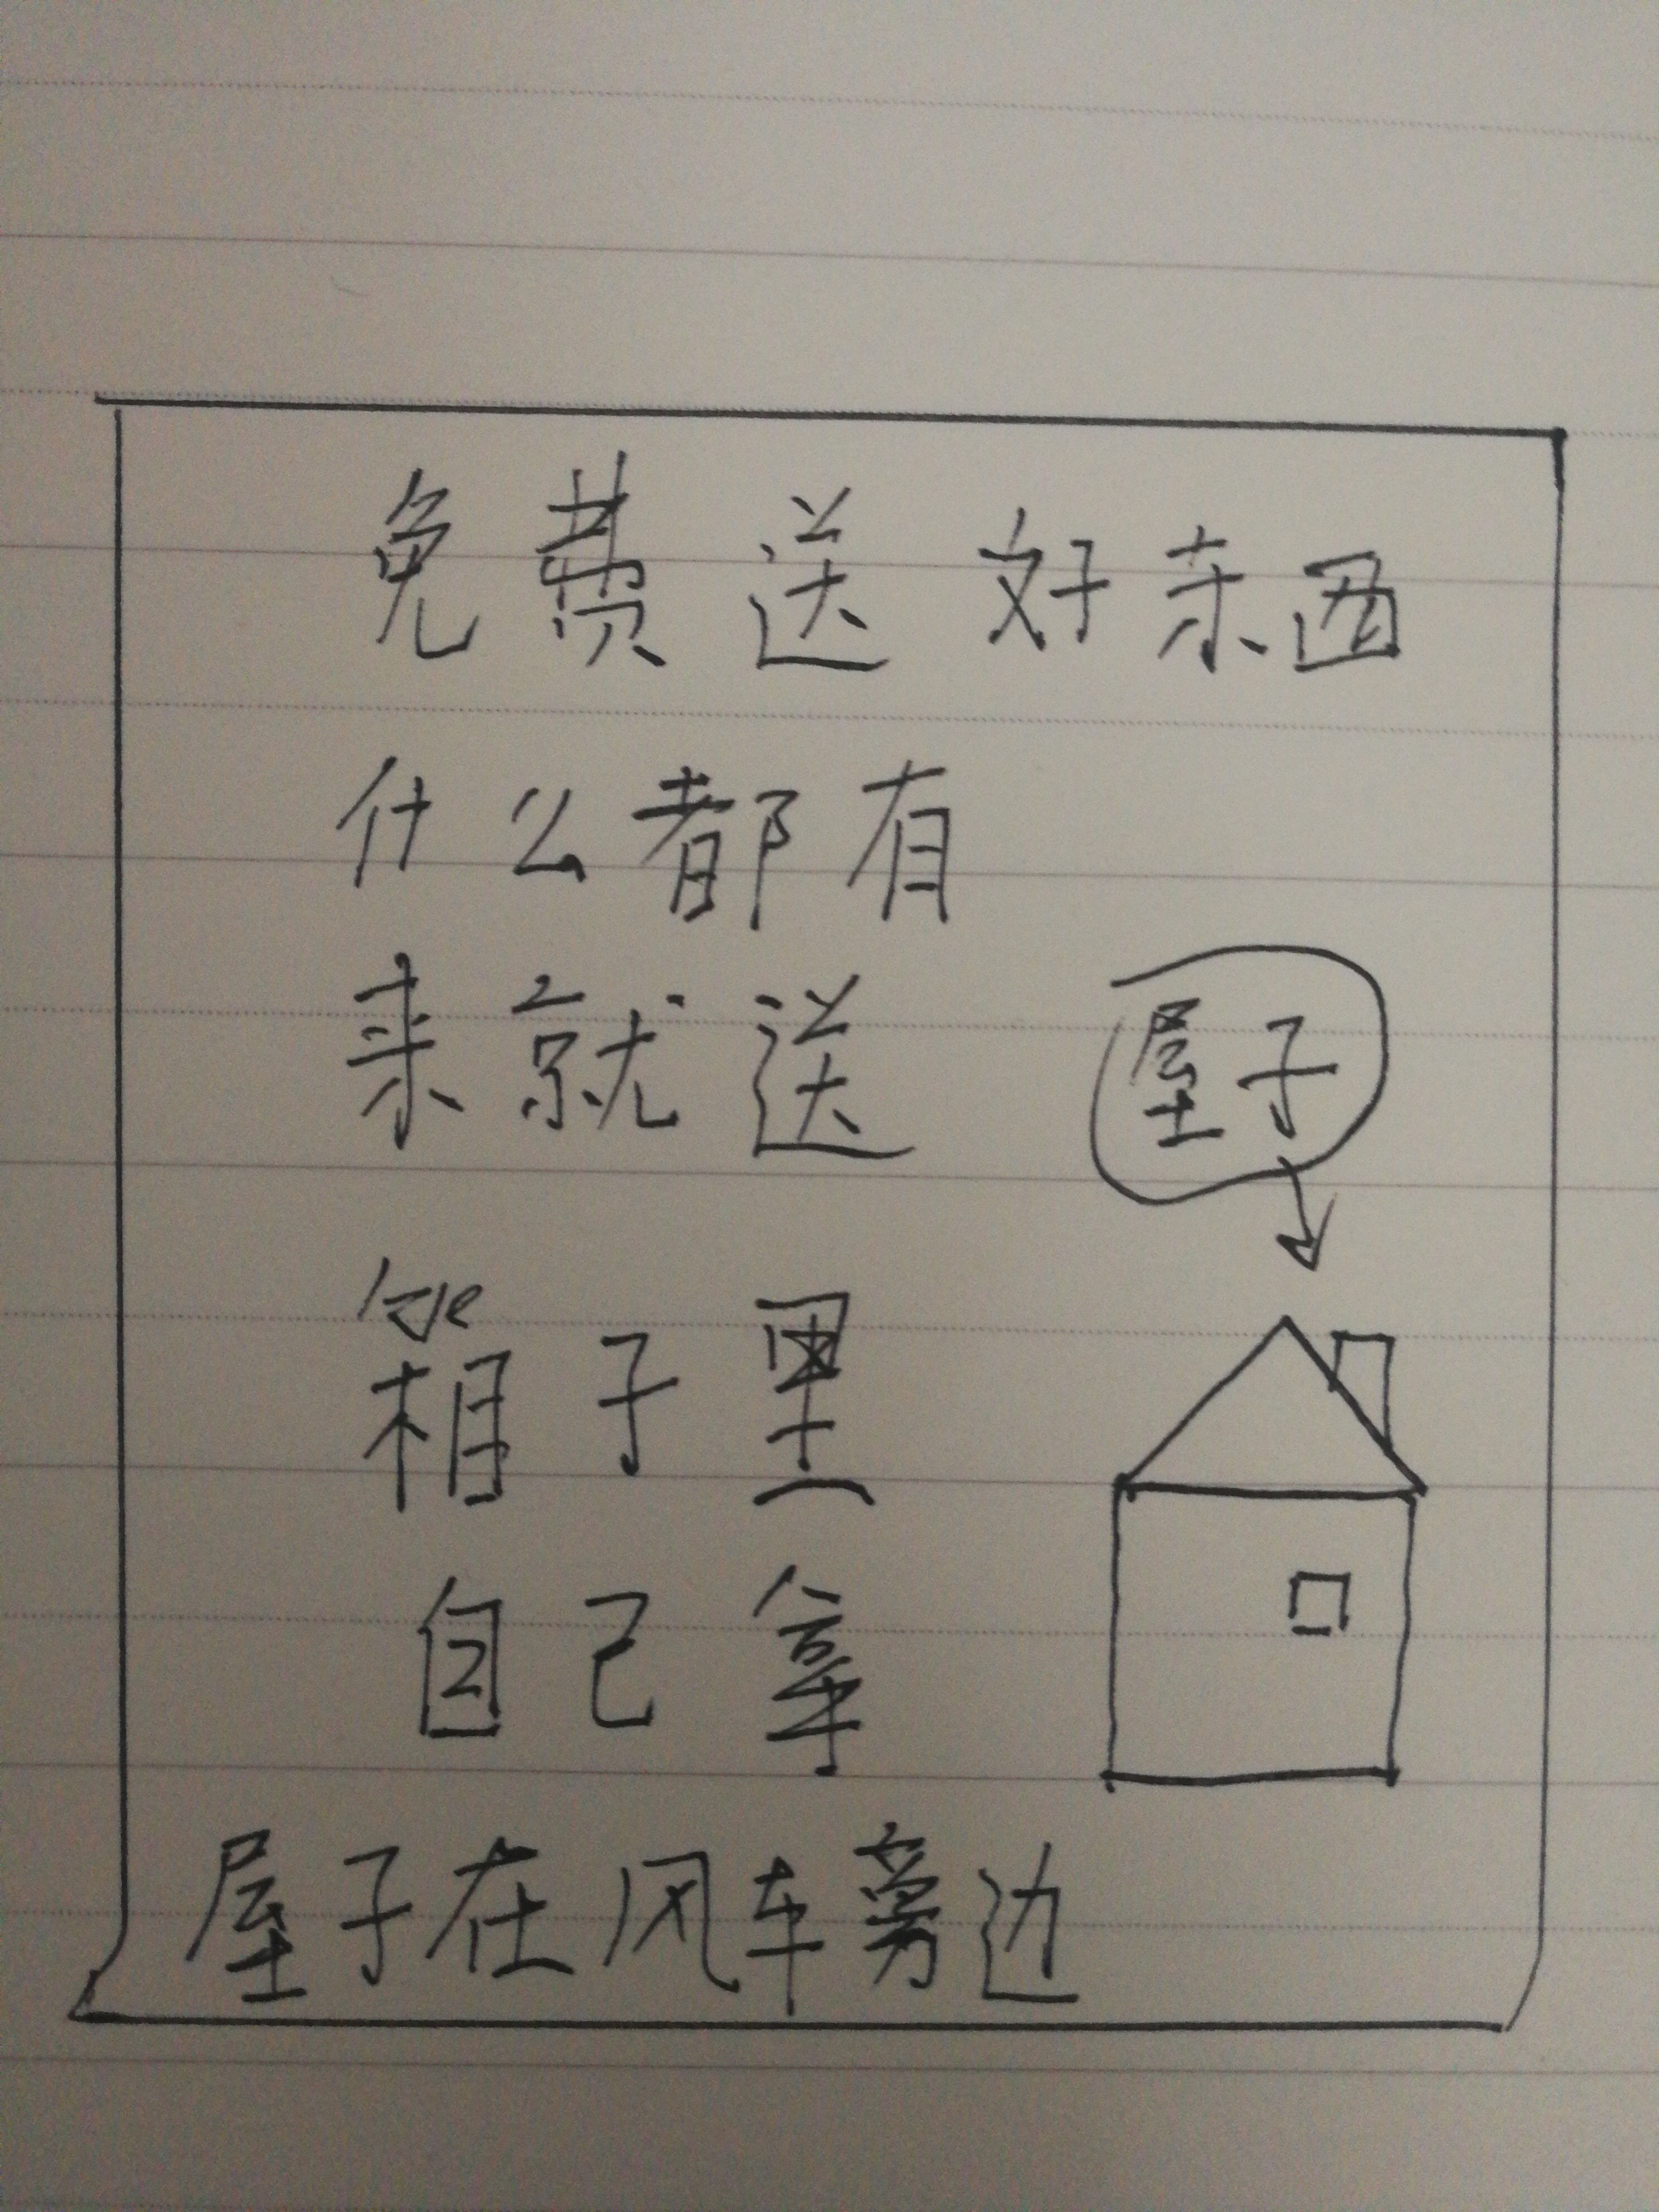 免费送好东西
什么都有
来就送
屋子
箱子里
自己拿
屋子在风车旁边